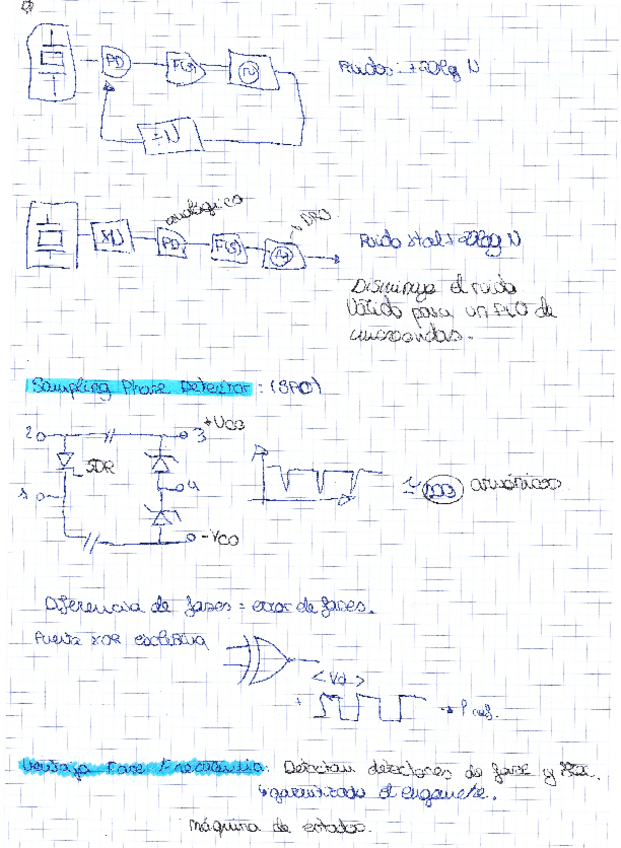 PD F(s)
Ruido: +20lg N
÷N
analógico
→ DRO
XN PD F(s)
Ruido xtal + 20lg N
Disminuye el ruido
Válido para un PLO de
microondas.
Sampling Phase Detector: (SPD)
2 3 +Vco
SDR
4
1
-Vco
armónicos
Diferencia de fases = error de fases.
Puerta XOR exclusiva
<Vd>
+
Ventaja Fase Frecuencia: Detectan detectores de fase y
garantizado el enganche.
máquina de estados.